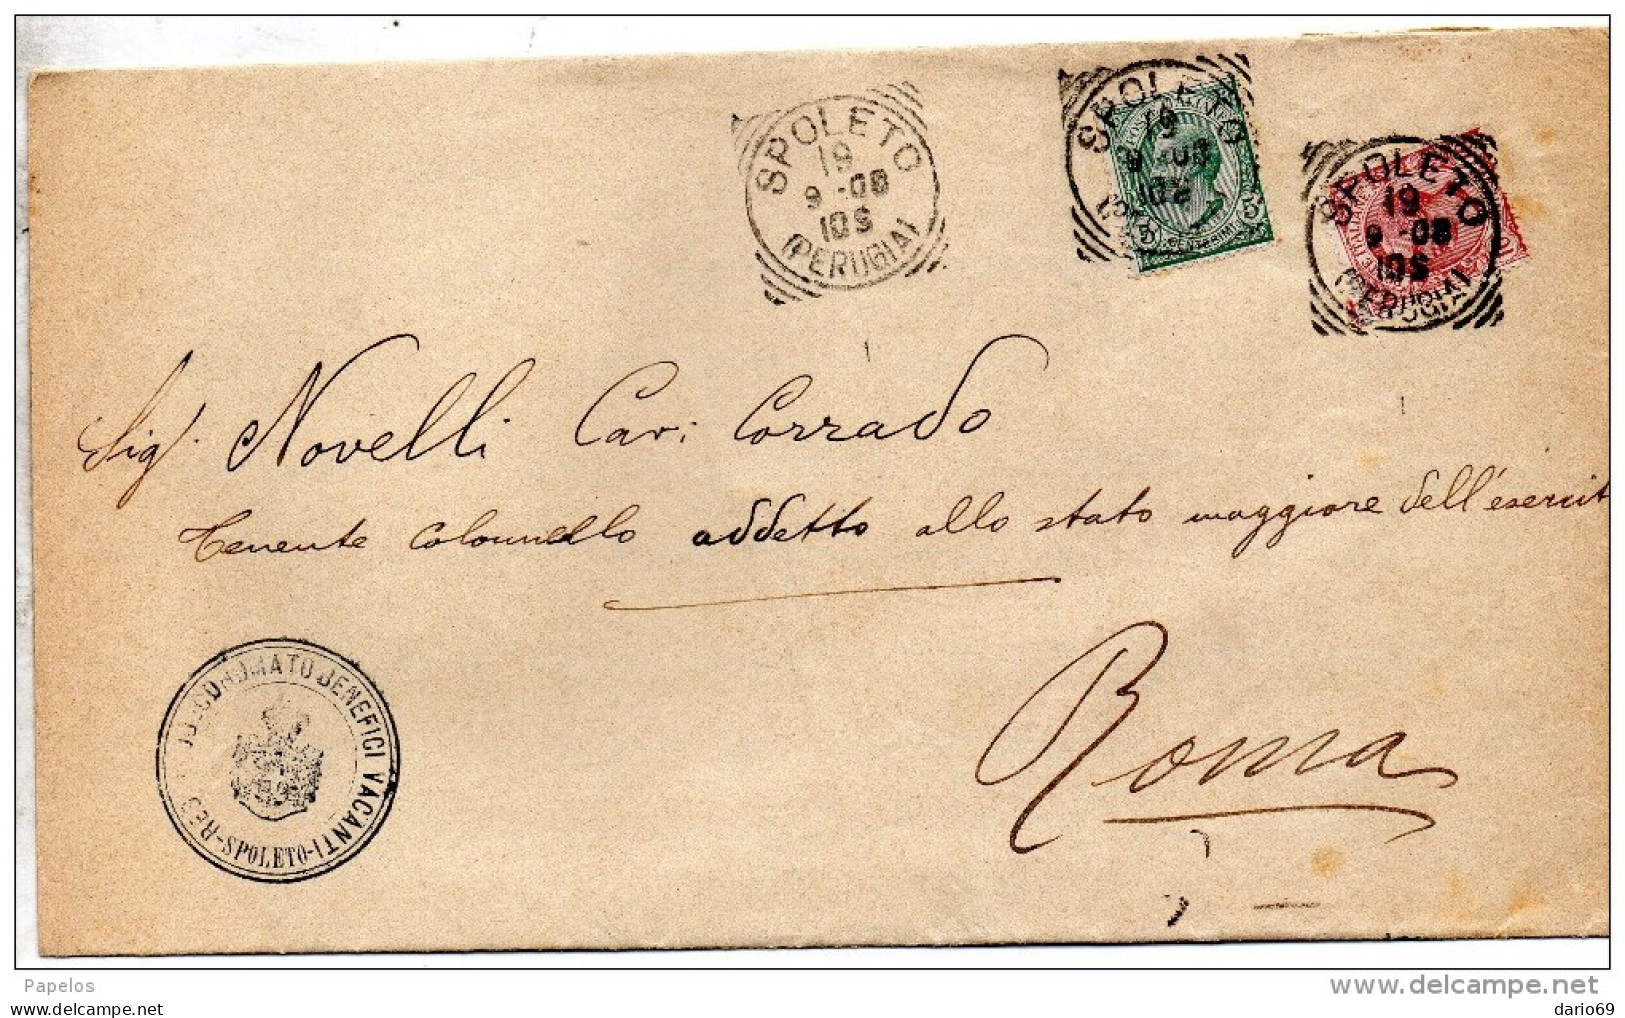 SPOLETO
19
9 -08
10S
(PERUGIA)
SPOLETO
19
9 -08
10S
5
5
CENTESIMI
SPOLETO
19
9 -08
10S
(PERUGIA)
Sig. Novelli Cav: Corrado
Tenente Colonnello addetto allo stato maggiore dell'esercit
Roma
BENEFICI VACANTI
-SPOLETO-
Papelos
www.delcampe.net
dario69